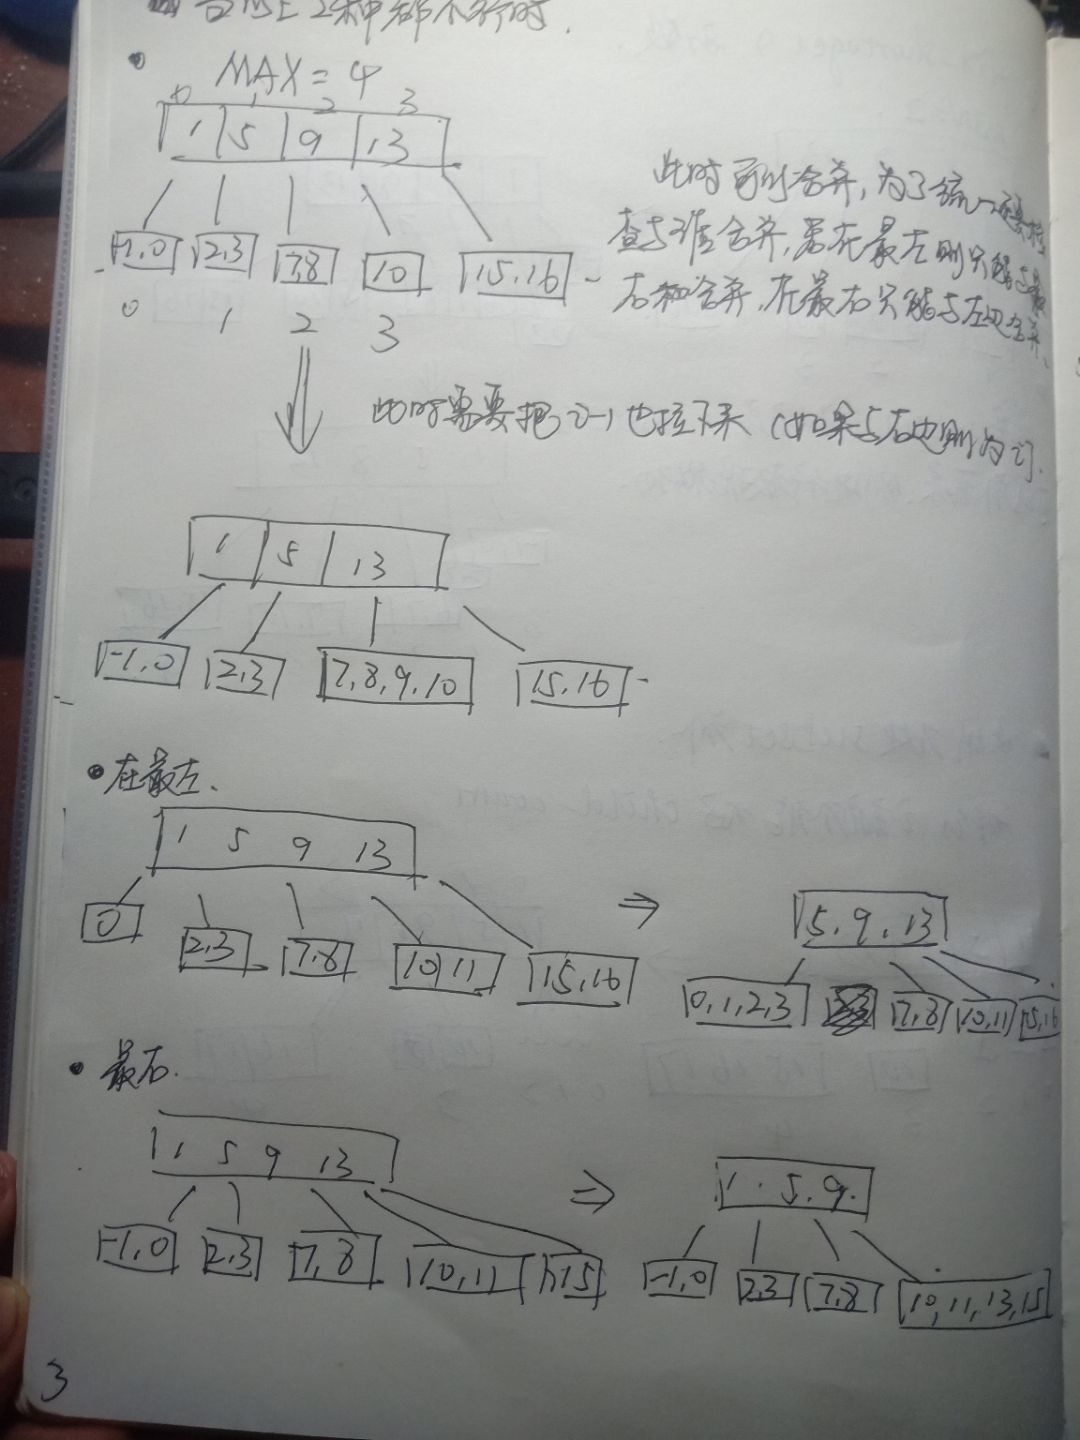 2种都不行时.
MAX = 4
0 1 2 3
1 5 9 13
-1,0 2,3 7,8 10 15,16
0 1 2 3
此时可以合并,为了统一
查与谁合并,若在最左则只能与
右和合并,在最右只能与左边合并.
此时需要把i-1也拉下来 (如果与右边则为i).
1 5 13
-1,0 2,3 7,8,9,10 15,16
在最左.
1 5 9 13
0 2,3 7,8 10,11 15,16
⇒
5.9.13
0,1,2,3 7,8 10,11 15,16
最右.
1 5 9 13
-1,0 2,3 7,8 10,11 15
⇒
1.5.9.
-1,0 2,3 7,8 10,11,13,15
3